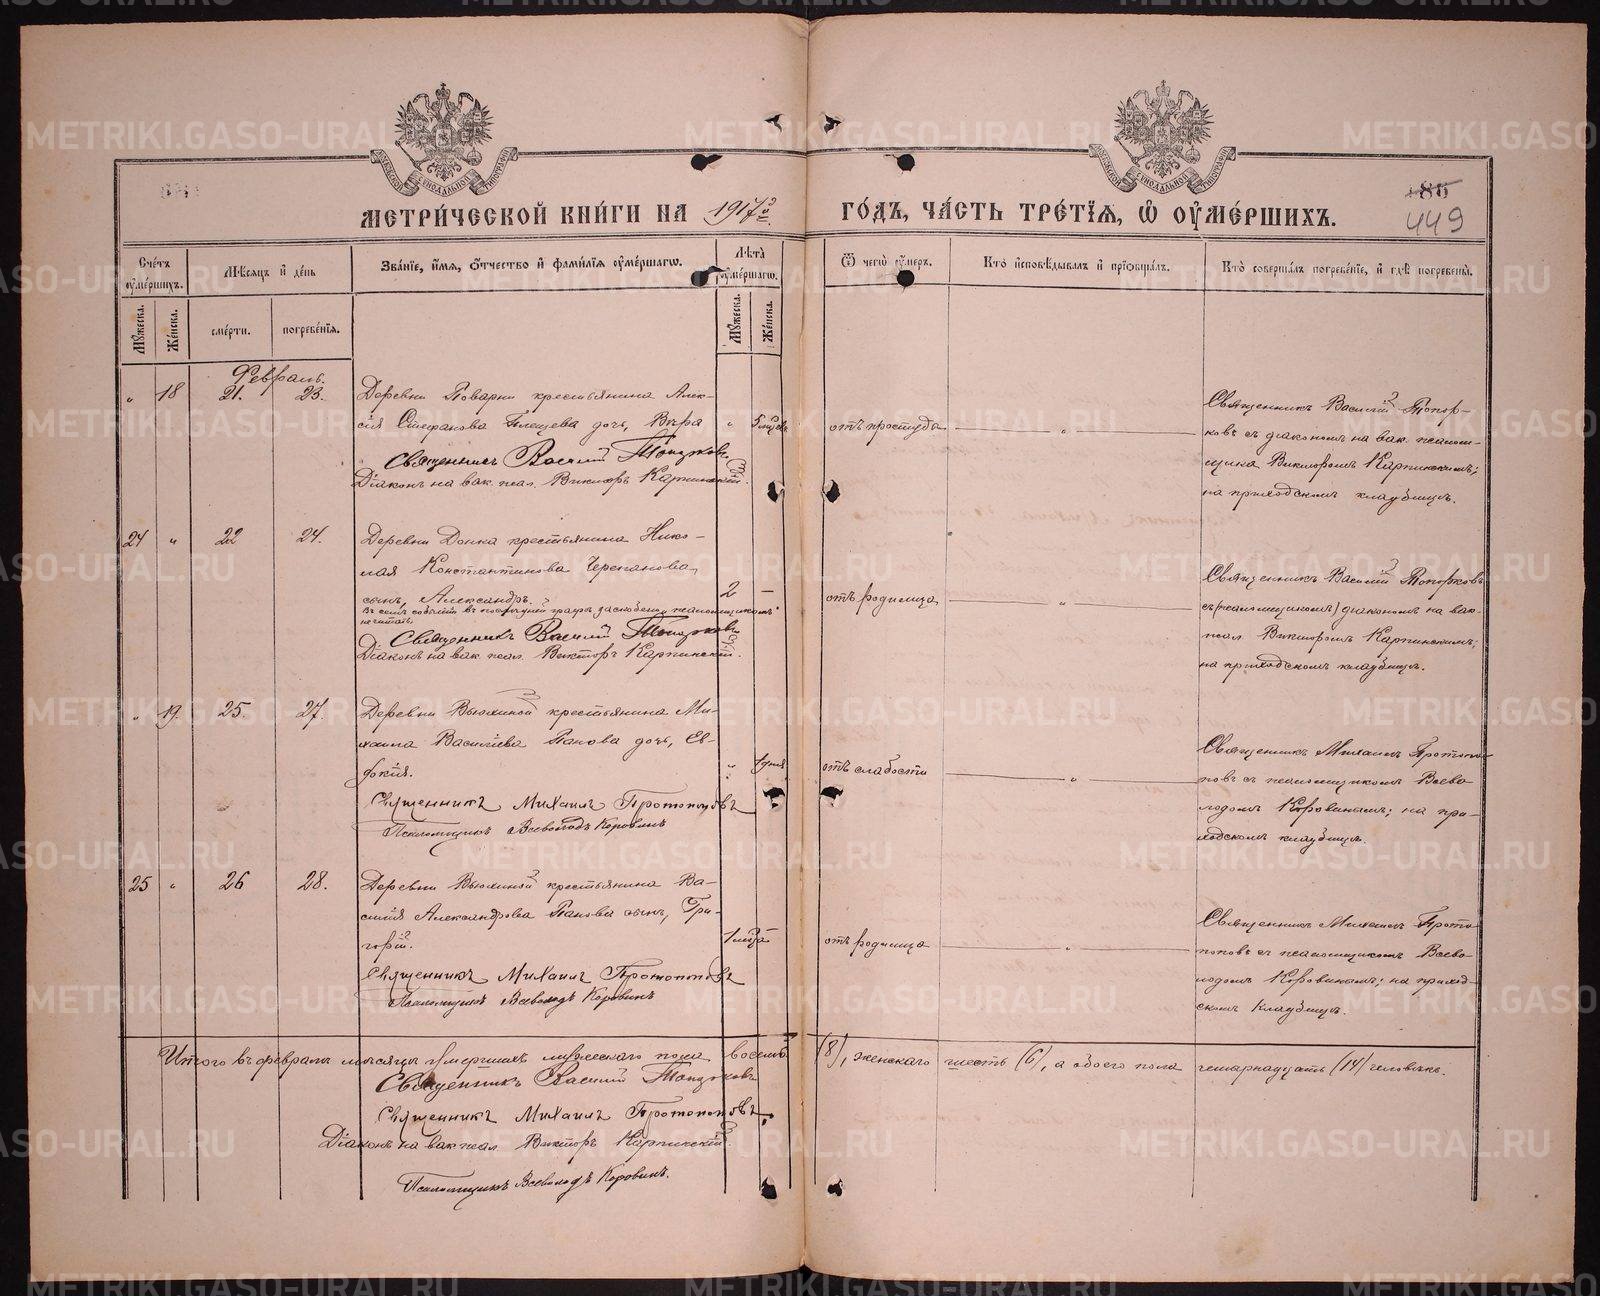 МЕТРИ́ЧЕСКОЙ КНИ́ГИ НА 1917й ГО́ДЪ, ЧА́СТЬ ТРЕ́ТІѦ, Ѡ ОУ҆МЕ́РШИХЪ.
186
449
Сче́тъ оу҆ме́ршихъ.
Мꙋ́жеска.
Же́нска.
Мѣ́сѧцъ и҆ де́нь
сме́рти.
погребе́нїѧ.
Зва́нїе, и҆́мѧ, ѻ҆́тчество и҆ фами́лїѧ оу҆ме́ршагѡ.
Лѣ́та оу҆ме́ршагѡ.
Мꙋ́жеска.
Же́нска.
Ѿ чегѡ̀ оу҆́меръ.
Кто̀ и҆сповѣ́дывалъ и҆ прїѡбща́лъ.
Кто̀ соверша́лъ погребе́нїе, и҆ гдѣ̀ погребены̀.
Февраль.
" 18 21. 23.
Деревни Поварни крестьянина Алек-
сія Стефанова Плещева дочь, Вѣра " 5 мцевъ
Священникъ Василій Топорковъ
Діаконъ на вак. псал. Викторъ Карпинскій.
отъ простуды
"
Священникъ Василій Топор-
ковъ съ діакономъ на вак. псалом-
щика Викторомъ Карпинскимъ;
на приходскомъ кладбищѣ.
24 " 22 24.
Деревни Донка крестьянина Нико-
лая Константинова Черепанова
сынъ, Александръ. 2 -
Въ семъ событіи въ послѣдней графѣ заскобенное псаломщикомъ
не читать.
Священникъ Василій Топорковъ
Діаконъ на вак. псал. Викторъ Карпинскій.
отъ родимца
"
Священникъ Василій Топорковъ
съ (псаломщикомъ) діакономъ на вак.
псал. Викторомъ Карпинскимъ;
на приходскомъ кладбищѣ.
" 19. 25. 27.
Деревни Вьюхиной крестьянина Ми-
хаила Василіева Панова дочь, Ев-
докія. " 1 дня
Священникъ Михаилъ Протопоповъ
Псаломщикъ Всеволодъ Коровинъ
отъ слабости
"
Священникъ Михаилъ Протопо-
повъ съ псаломщикомъ Всево-
лодомъ Коровинымъ; на при-
ходскомъ кладбищѣ.
25 " 26 28.
Деревни Вьюхиной крестьянина Ва-
силія Александрова Панова сынъ, Гри-
горій. 1 мѣсца
Священникъ Михаилъ Протопоповъ
Псаломщикъ Всеволодъ Коровинъ
отъ родимца
"
Священникъ Михаилъ Прото-
поповъ съ псаломщикомъ Всево-
лодомъ Коровинымъ; на приход-
скомъ кладбищѣ.
Итого въ февралѣ мѣсяцѣ умершихъ мужескаго пола восемь (8), женскаго шесть (6), а обоего пола четырнадцать (14) человѣкъ.
Священникъ Василій Топорковъ
Священникъ Михаилъ Протопоповъ
Діаконъ на вак. псал. Викторъ Карпинскій.
Псаломщикъ Всеволодъ Коровинъ.
METRIKI.GASO-URAL.RU